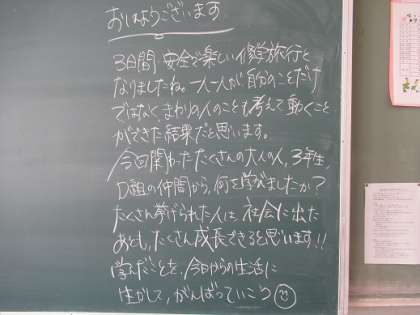 おはようございます
3日間 安全で楽しい修学旅行と
なりましたね。一人一人が自分のことだけ
ではなく、まわりの人のことも考えて動くこと
ができた結果だと思います。
今回関わったたくさんの大人の人、3年生、
D組の仲間から、何を学びましたか?
たくさん挙げられた人は、社会に出た
あとも、たくさん成長できると思います!!
学んだことを、今日からの生活に
生かして、がんばっていこう